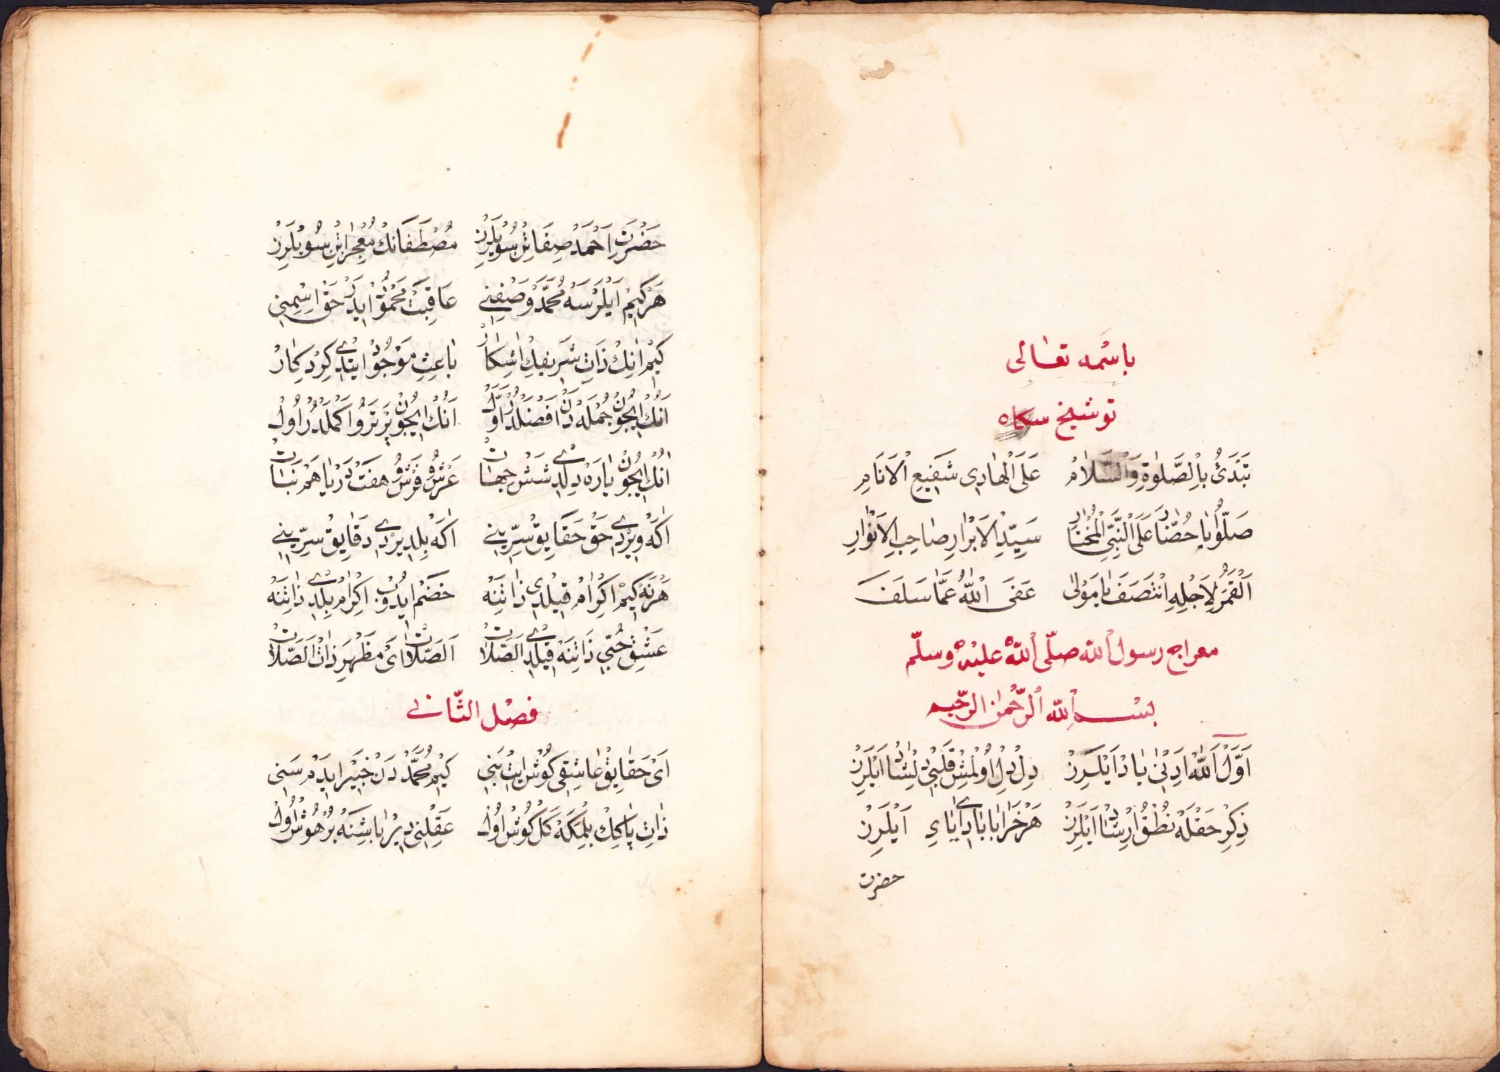 باسمه تعالى
توشيح سكاه
نَبْتَدِئُ بِالصَّلٰوةِ وَالسَّلَامْ عَلَى الْهَادِى شَفِيعِ الْاَنَامِ
صَلُّوا يَا حُضَّنَا عَلَى النَّبِىِّ الْمُخْتَارِ سَيِّدِ الْاَبْرَارِ صَاحِبِ الْاَنْوَارِ
اَلْقَمَرُ لِاَجْلِهِ انْتَصَفَ يَا مَوْلٰى عَفَى اللّٰهُ عَمَّا سَلَفَ
معراج رسول الله صلّى الله عليه وسلّم
بسم الله الرّحمٰن الرّحيم
اَوَّلْ اَللّٰهْ اَدِنِى يَادْ اَيْلَرِزْ دِلْ دِلْ اُولْمِشْ قَلْبِى دِلْشَادْ اَيْلَرِزْ
ذِكْرِ حَقْلَهْ نُطْقُ اِرْشَادْ اَيْلَرِزْ هَرْ خَرَابْ اٰبَادِى اٰبَادْ اَيْلَرِزْ
حضرت
حَضْرَتِ اَحْمَدْ صِفَاتِنْ سُويْلَرِزْ مُصْطَفَانِكْ مُعْجِزَاتِنْ سُويْلَرِزْ
هَرْ كِيمْ اَيْلَرْسَهْ مُحَمَّدْ وَصْفِنِى عَاقِبَتْ مَحْمُودْ اِيدَرْ حَقْ اِسْمِنِى
كِيمْ اٰنِكْ ذَاتِ شَرِيفِكْ اٰشِكَارْ بَاعِثِ مَوْجُودْ اِيتْدِى كِرْدِكَارْ
اَنُكْ اِيچُونْ جُمْلَهْ دَنْ اَفْضَلْدُرْ اَوَّلْ اَنُكْ اِيچُونْ بَرْتَرُ و اَكْمَلْدُرْ اُولْ
اَنُكْ اِيچُونْ يَارَهْ دِلْدِى شَشْ جِهَاتْ عَرْشُ و فَرْشُ و هَفْتْ دَرْيَا هَمْ نَبَاتْ
اَكَهْ وِيرْدِى حَقْ حَقَايِقْ سِرِّينِى اَكَهْ بِلْدِيرْدِى دَقَايِقْ سِرِّينِى
هَرْ نَهْ كِيمْ اِكْرَامْ قِيلْدِى ذَاتِنَهْ خَصْمْ اِيدُوبْ اِكْرَامْ بِلْدِى ذَاتِنَهْ
عَشْقِ حُبِّى ذَاتِنَهْ قِيلْدِى الصَّلَاتْ اَلصَّلَاتْ اَىْ مَظْهَرِ ذَاتْ الصَّلَاتْ
فصل الثّانى
اَىْ حَقَايِقْ عَاشِقِى كُوشْ اِيتْ بَنِى كِيمْ مُحَمَّدْ دَنْ خَبِيرْ اِيدَمْ سَنِى
ذَاتِ پَاكِكْ بِلْمِكَهْ كَلْ كُوشْ اُولْ عَقْلِنِى دِيرْ بَاشِنَهْ پُرْ هُوشْ اُولْ